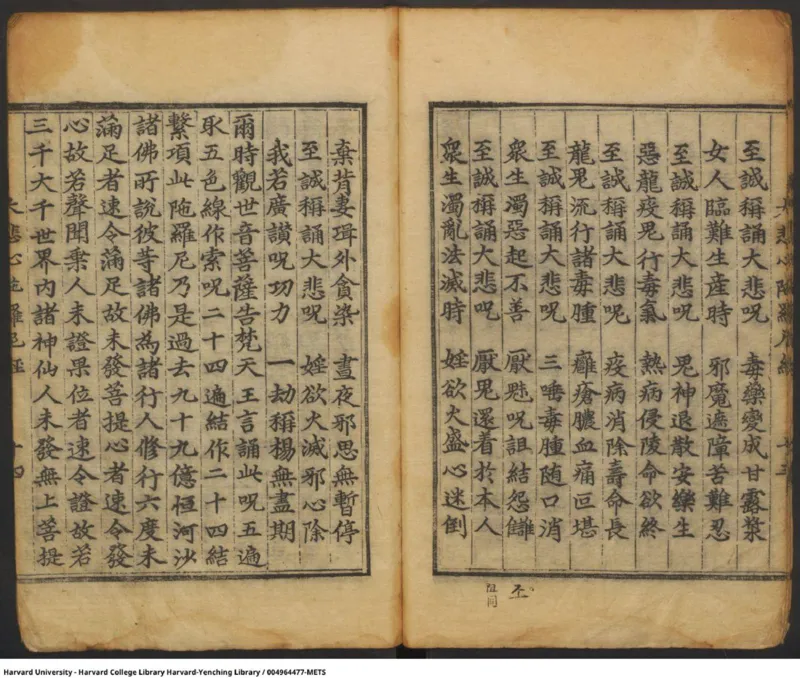 至誠稱誦大悲呪 毒藥變成甘露漿
女人臨難生産時 邪魔遮障苦難忍
至誠稱誦大悲呪 鬼神退散安樂生
惡龍疫鬼行毒氣 熱病侵陵命欲終
至誠稱誦大悲呪 疫病消除壽命長
龍鬼流行諸毒腫 癰瘡膿血痛叵堪
至誠稱誦大悲呪 三唾毒腫随口消
衆生濁惡起不善 厭魅呪詛結怨讎
至誠稱誦大悲呪 厭鬼還着於本人
衆生濁亂法滅時 婬欲火盛心迷倒
棄背妻珥外貪染 晝夜邪思無暫停
至誠稱誦大悲呪 婬欲火滅邪心除
我若廣讃呪功力 一劫稱揚無盡期
爾時觀世音菩薩告梵天王言誦此呪五遍
取五色線作索呪二十四遍結作二十四結
繫項此陁羅尼乃是過去九十九億恒河沙
諸佛所說彼等諸佛為諸行人修行六度未
滿足者速令滿足故未發菩提心者速令發
心故若聲聞乗人未證果位者速令證故若
三千大千世界內諸神仙人未發無上菩提
大悲心陁羅尼經 十四
Harvard University - Harvard College Library Harvard-Yenching Library / 004964477-METS